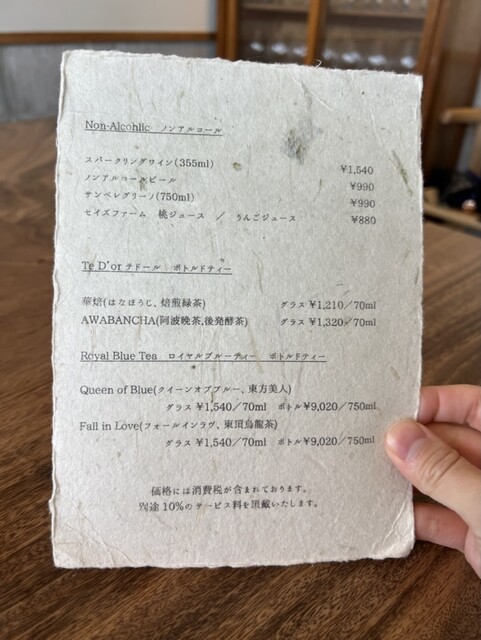 Non-Alcohlic ノンアルコール
スパークリングワイン(355ml) ¥1,540
ノンアルコールビール ¥990
サンペレグリーノ(750ml) ¥990
セイズファーム 桃ジュース / りんごジュース ¥880
Te D'or テドール ボトルドティー
華焙(はなほうじ、焙煎緑茶) グラス ¥1,210/70ml
AWABANCHA(阿波晩茶,後発酵茶) グラス ¥1,320/70ml
Royal Blue Tea ロイヤルブルーティー ボトルドティー
Queen of Blue(クイーンオブブルー、東方美人)
グラス ¥1,540/70ml ボトル¥9,020/750ml
Fall in Love(フォールインラヴ、東頂烏龍茶)
グラス ¥1,540/70ml ボトル¥9,020/750ml
価格には消費税が含まれております。
別途 10%のサービス料を頂戴いたします。